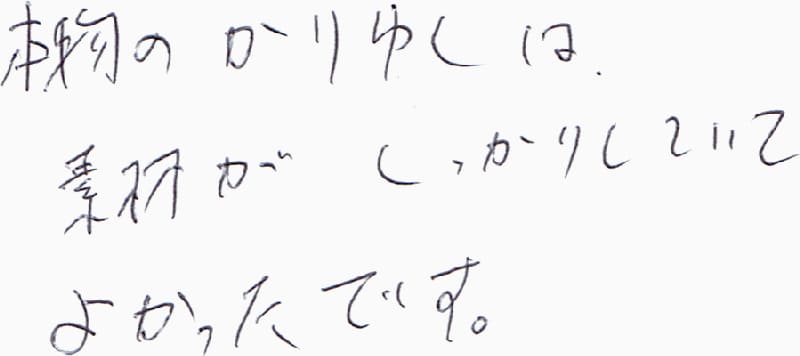 本物のかりゆしは
素材がしっかりしていて
よかったです。